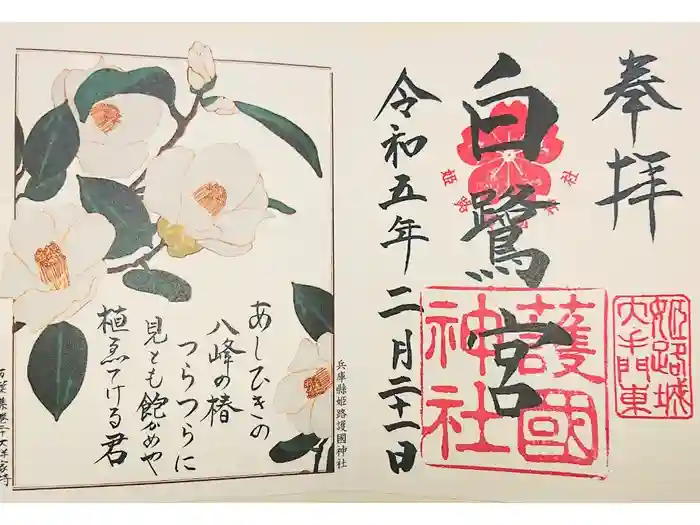 奉拝
白鷺宮
令和五年二月二十一日
護國
神社
姫路城
大手門東
あしひきの
八峰の椿
つらつらに
見とも飽かめや
植ゑてける君
兵庫縣姫路護國神社